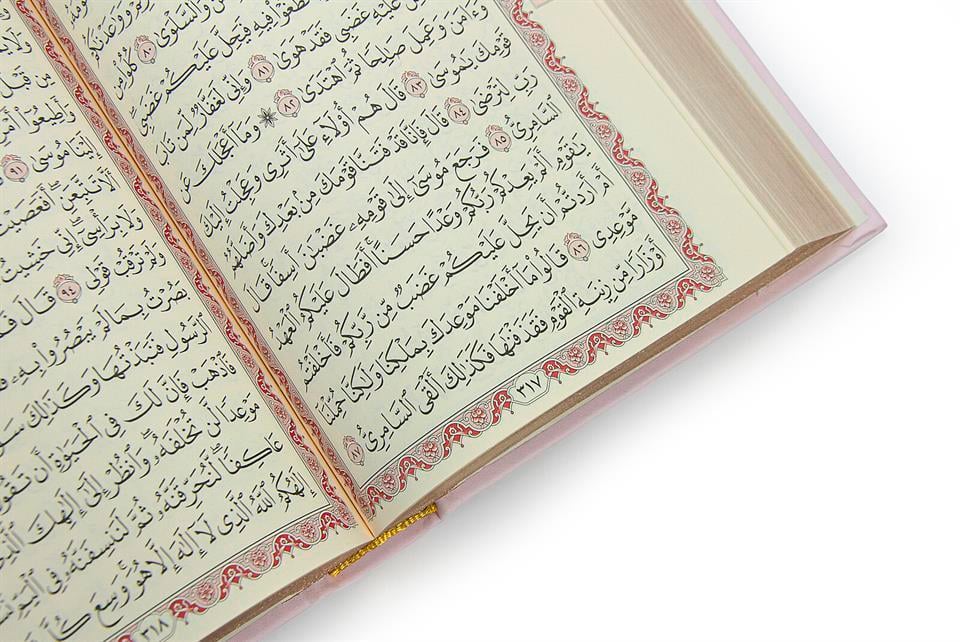 وَوَٰعَدْنَٰكُمْ
وَٱلسَّلْوَىٰ ٨٠ كُلُوا۟ مِن
تَطْغَوْا۟ فِيهِ فَيَحِلَّ عَلَيْكُمْ غَضَبِى
عَلَيْهِ غَضَبِى فَقَدْ هَوَىٰ ٨١ وَإِنِّى لَغَفَّارٌ لِّمَن تَابَ
وَءَامَنَ وَعَمِلَ صَٰلِحًا ثُمَّ ٱهْتَدَىٰ ٨٢ ۞ وَمَآ أَعْجَلَكَ عَن
قَوْمِكَ يَٰمُوسَىٰ ٨٣ قَالَ هُمْ أُو۟لَآءِ عَلَىٰٓ أَثَرِى وَعَجِلْتُ إِلَيْكَ
رَبِّ لِتَرْضَىٰ ٨٤ قَالَ فَإِنَّا قَدْ فَتَنَّا قَوْمَكَ مِنۢ بَعْدِكَ وَأَضَلَّهُمُ
ٱلسَّامِرِىُّ ٨٥ فَرَجَعَ مُوسَىٰٓ إِلَىٰ قَوْمِهِۦ غَضْبَٰنَ أَسِفًا قَالَ
يَٰقَوْمِ أَلَمْ يَعِدْكُمْ رَبُّكُمْ وَعْدًا حَسَنًا أَفَطَالَ عَلَيْكُمُ ٱلْعَهْدُ
أَمْ أَرَدتُّمْ أَن يَحِلَّ عَلَيْكُمْ غَضَبٌ مِّن رَّبِّكُمْ فَأَخْلَفْتُم
مَّوْعِدِى ٨٦ قَالُوا۟ مَآ أَخْلَفْنَا مَوْعِدَكَ بِمَلْكِنَا وَلَٰكِنَّا حُمِّلْنَآ
أَوْزَارًا مِّن زِينَةِ ٱلْقَوْمِ فَقَذَفْنَٰهَا فَكَذَٰلِكَ أَلْقَى ٱلسَّامِرِىُّ ٨٧
٣١٧
مِن قَبْلُ
وَأَطِيعُوٓا۟ أَمْرِى
إِلَيْنَا مُوسَىٰ ٩١
أَلَّا تَتَّبِعَنِ أَفَعَصَيْتَ
وَلَا بِرَأْسِىٓ إِنِّى خَشِيتُ
وَلَمْ تَرْقُبْ قَوْلِى ٩٤ قَالَ
بَصُرْتُ بِمَا لَمْ يَبْصُرُوا۟ بِهِۦ
ٱلرَّسُولِ فَنَبَذْتُهَا وَكَذَٰلِكَ
فَٱذْهَبْ فَإِنَّ لَكَ فِى ٱلْحَيَوٰةِ أَن تَقُولَ
مَوْعِدًا لَّن تُخْلَفَهُۥ وَٱنظُرْ إِلَىٰٓ إِلَٰهِكَ ٱلَّذِى
عَاكِفًا لَّنُحَرِّقَنَّهُۥ ثُمَّ لَنَنسِفَنَّهُۥ فِى ٱلْيَمِّ
إِلَٰهُكُمُ ٱللَّهُ ٱلَّذِى لَآ إِلَٰهَ إِلَّا هُوَ وَسِعَ كُلَّ
٣١٨